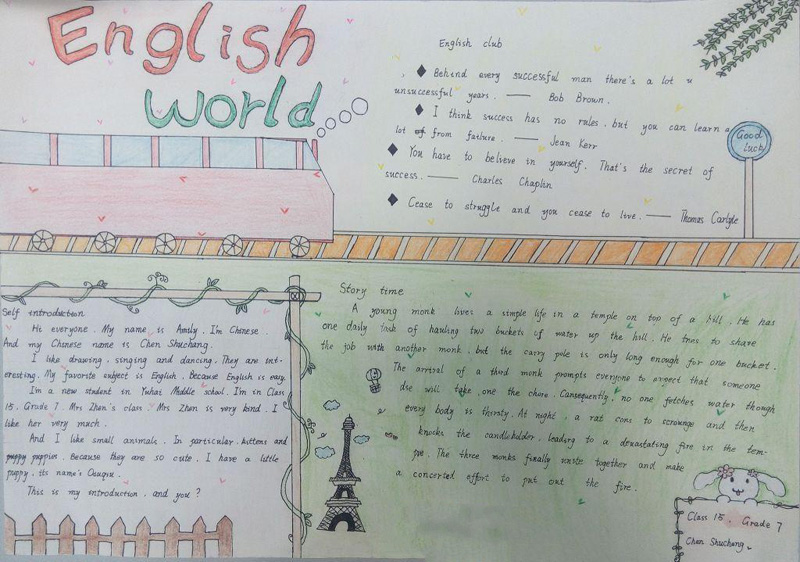 English
World
English club
◆ Behind every successful man there's a lot u
unsuccessful years. —— Bob Brown.
◆ I think success has no rules, but you can learn a
lot from failure. —— Jean Kerr
◆ You have to believe in yourself. That's the secret of
success. —— Charles Chaplin
◆ Cease to struggle and you cease to live. —— Thomas Carlyle
Good
luck
Self introduction
Hi everyone. My name is Amily. I'm Chinese.
And my Chinese name is Chen Shuchang.
I like drawing, singing and dancing. They are int-
eresting. My favorite subject is English. Because English is easy.
I'm a new student in Yuhai Middle school. I'm in Class
15. Grade 7. Mrs Zhen's class. Mrs Zhen is very kind. I
like her very much.
And I like small animals. In particular, kittens and
puppies. Because they are so cute. I have a little
puppy. its name's
This is my introduction, and you?
Story time
A young monk lives a simple life in a temple on top of a hill. He has
one daily task of hauling two buckets of water up the hill. He tries to share
the job with another monk, but the carry pole is only long enough for one bucket.
The arrival of a third monk prompts everyone to expect that someone
else will take one the chore. Consequently, no one fetches water though
every body is thirsty. At night, a rat coms to scrounge and then
knocks the candleholder, leading to a devastating fire in the tem-
ple. The three monks finally unite together and make
a concerted effort to put out the fire.
Class 15. Grade 7
Chen Shuchang